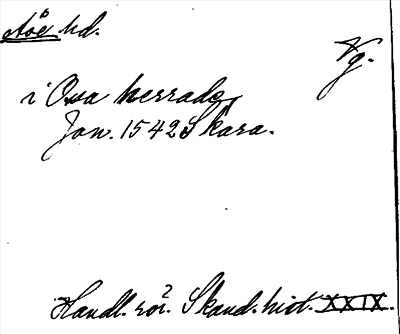 Åse hd.
Vg.
i Osa herrade
Jan. 1542 Skara.
Handl. rör. Skand. hist. XXIX.